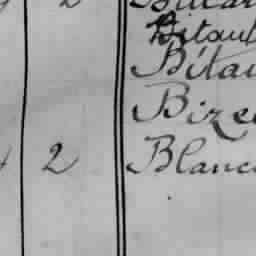 Bitau
Bitau
Bize
2 Blanc